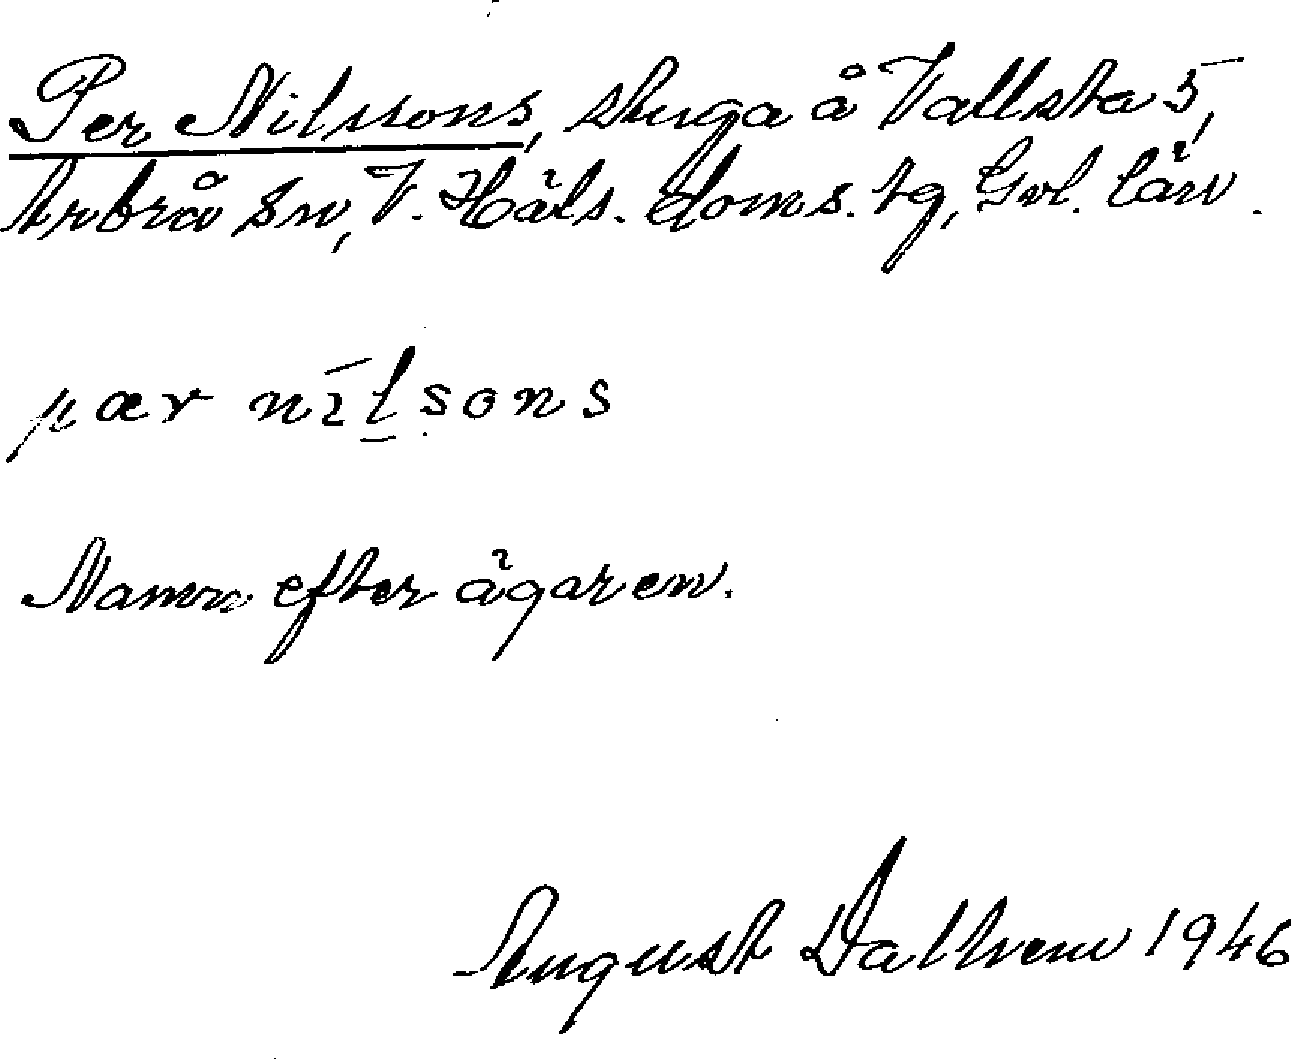 Per Nilssons, stuga å Vallsta 5,
Arbrå sn, V. Häls. doms. tg, Gvl. län.
pær nilsons
Namn efter ägaren.
August 1946